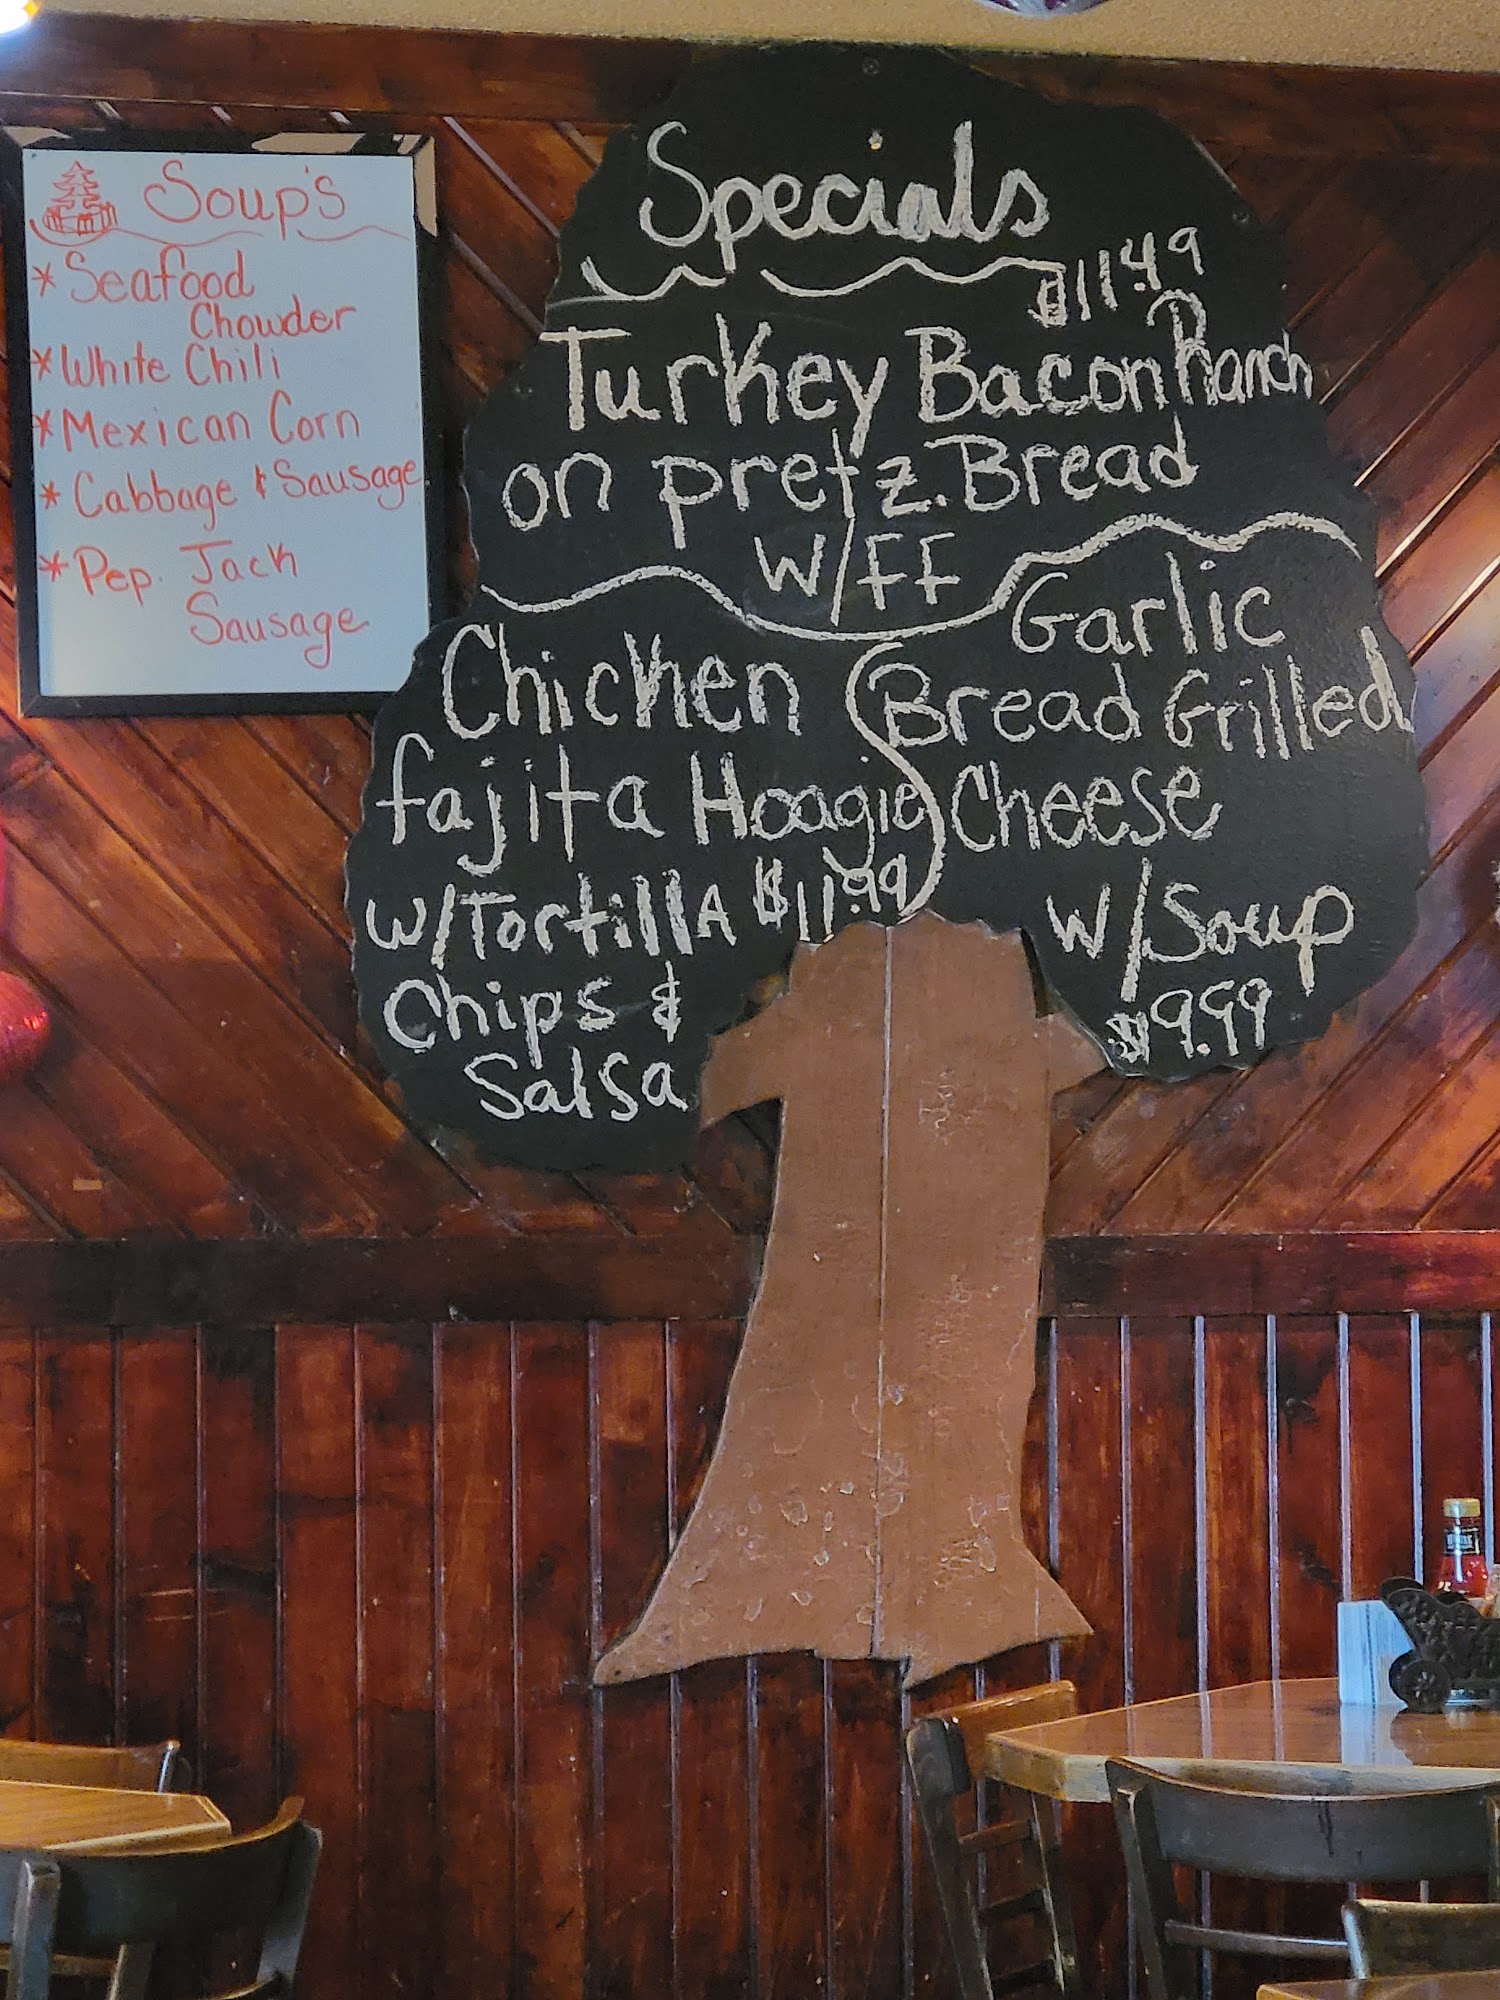 Soup's
* Seafood
Chowder
* White Chili
* Mexican Corn
* Cabbage & Sausage
* Pep. Jack
Sausage
Specials
$11.49
Turkey Bacon Ranch
on pretz. Bread
W/FF
Chicken
fajita Hoagie
W/TortillA $11.99
Chips &
Salsa
Garlic
Bread Grilled
Cheese
W/Soup
$9.99